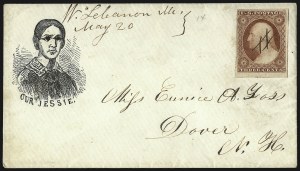 W. Lebanon Me
May 20
U.S. POSTAGE
THREE CENTS
OUR JESSIE.
Miss Eunice A. Goss
Dover
N. H.